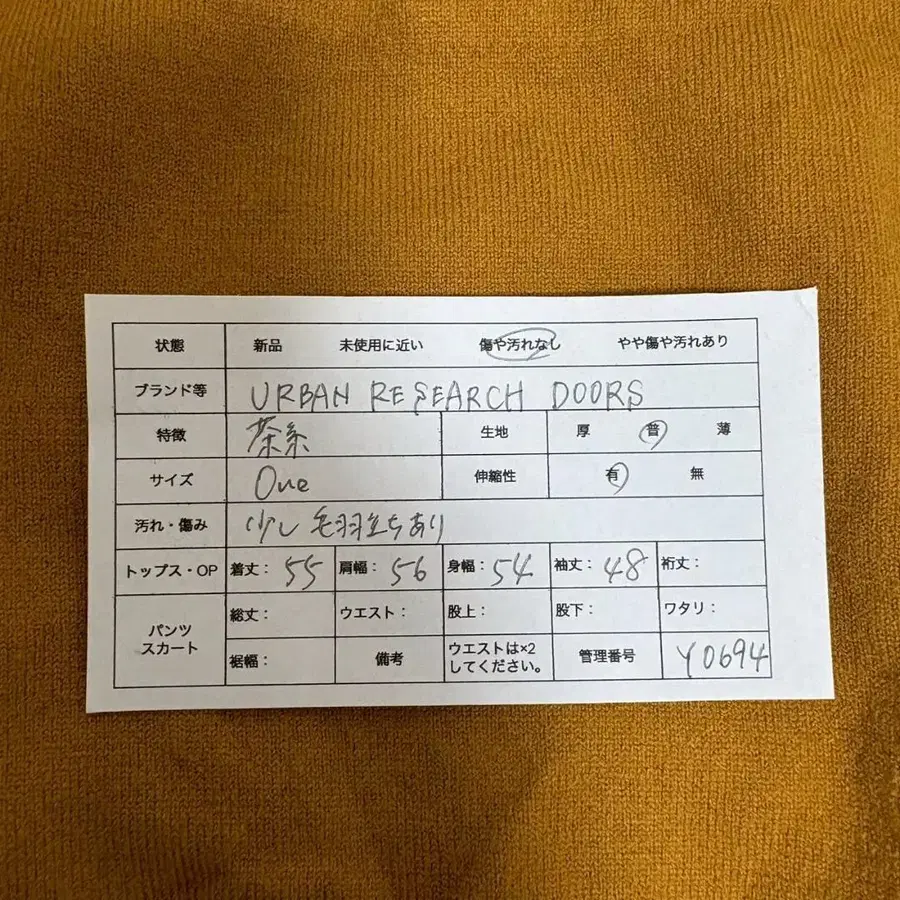 状態 新品 未使用に近い 傷や汚れなし やや傷や汚れあり
ブランド等 URBAN RESEARCH DOORS
特徴 茶系 生地 厚 普 薄
サイズ One 伸縮性 有 無
汚れ・傷み 少し毛羽立ちあり
トップス・OP 着丈: 55 肩幅: 56 身幅: 54 袖丈: 48 裄丈:
パンツ
スカート
総丈: ウエスト: 股上: 股下: ワタリ:
裾幅: 備考 ウエストは×2
してください。 管理番号 Y0694